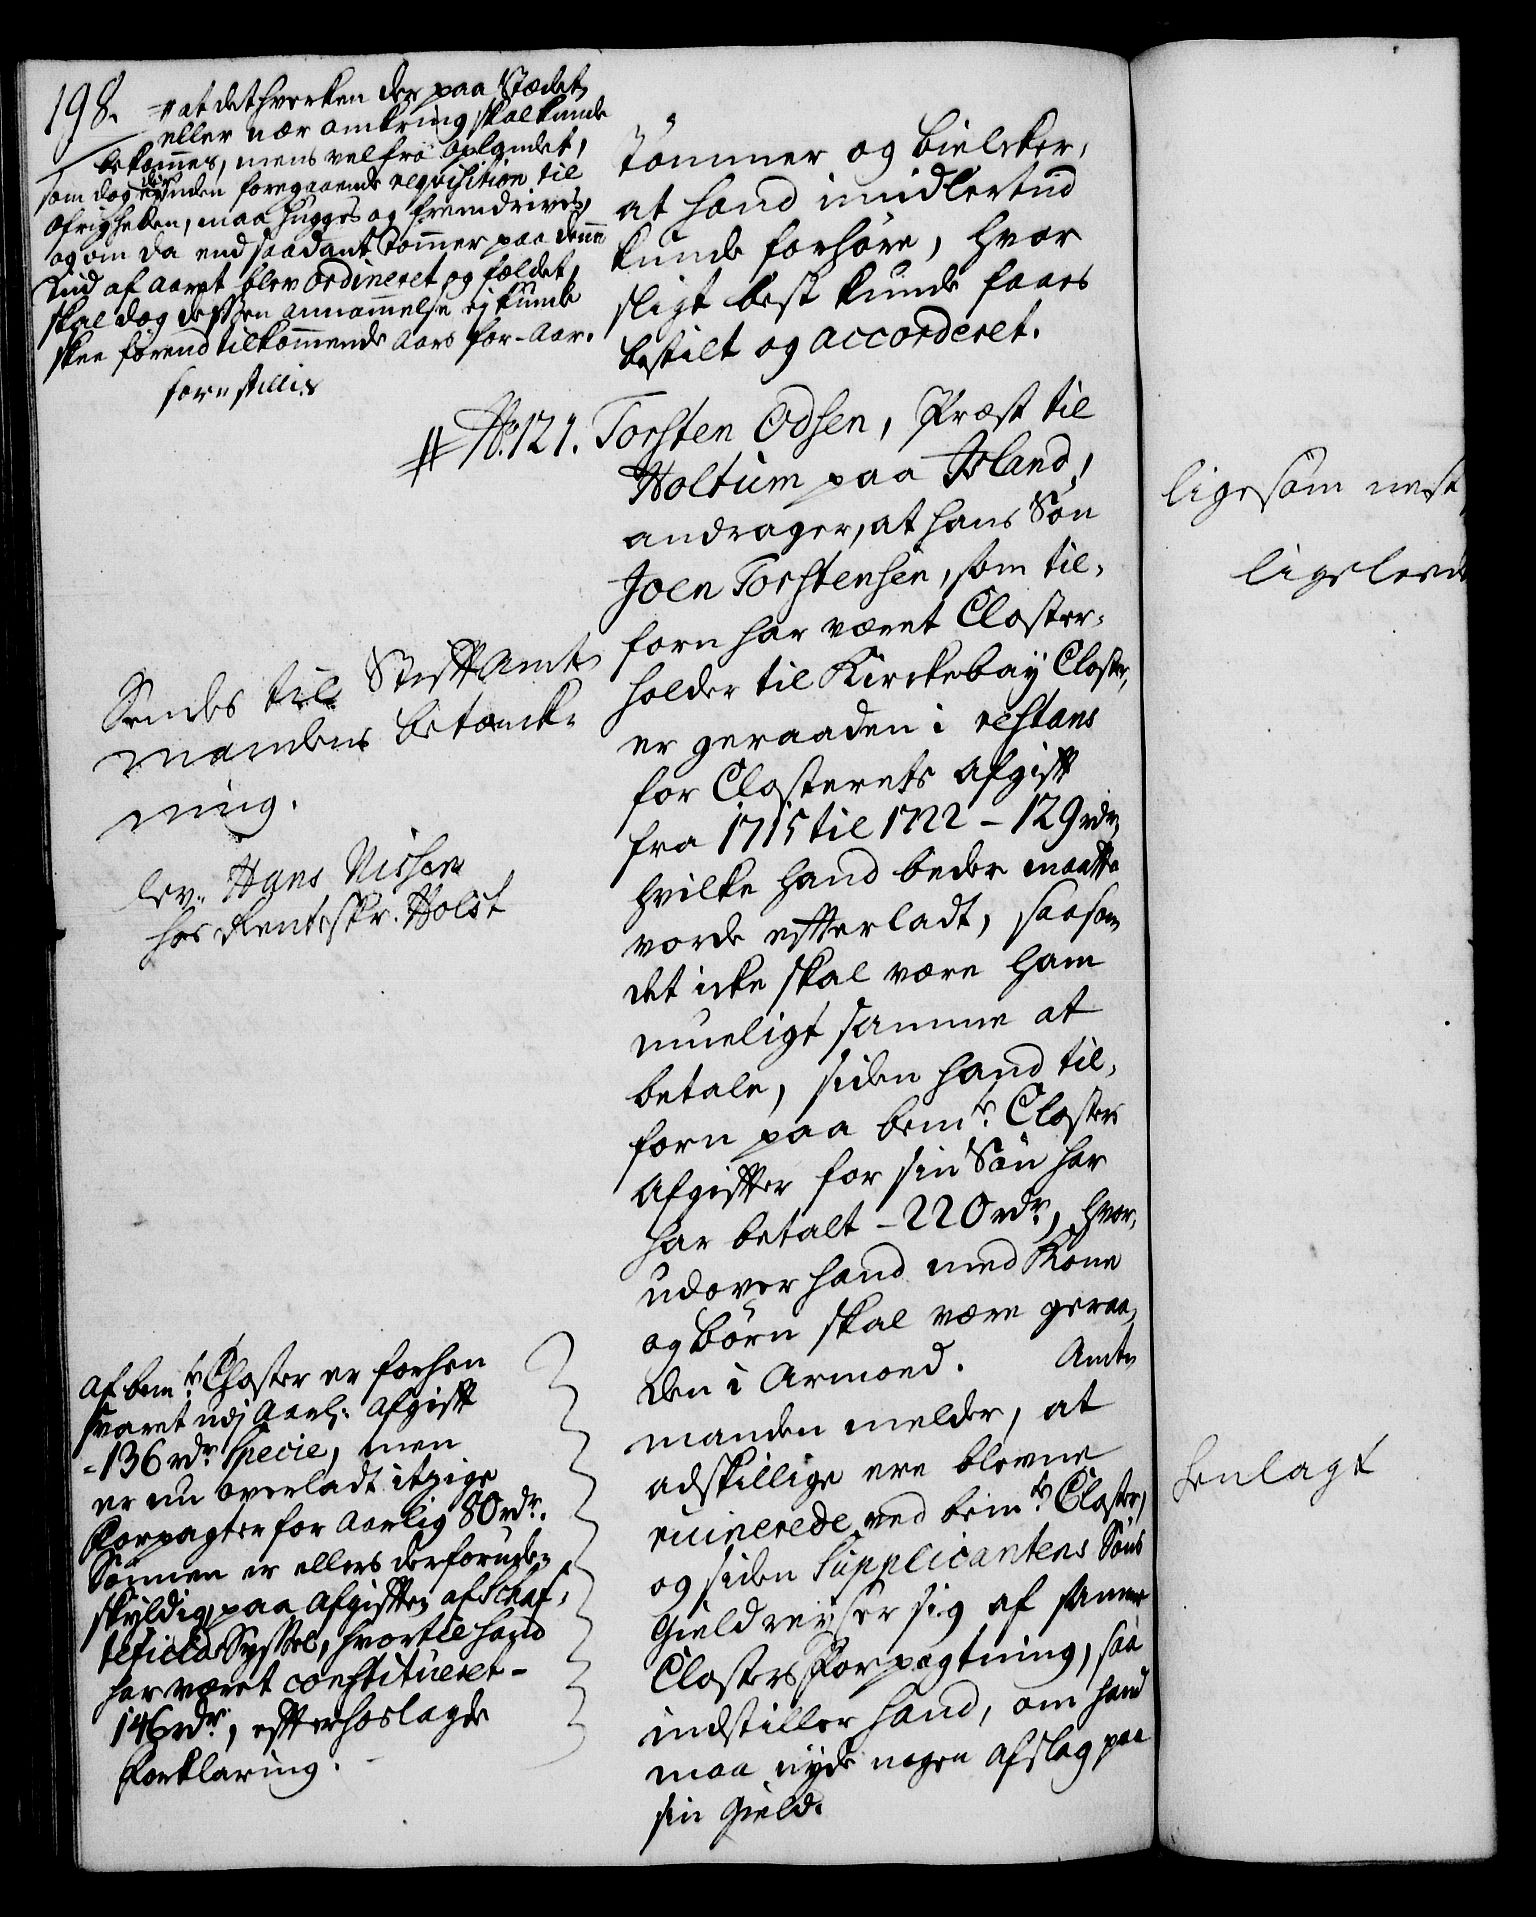 198.
# at det hverken der paa Stædet
eller nær omkring skal kunde
bekommes, mens vel fra Oplandet,
som dog ey uden foregaaende reqvisition til
Øfrigheden, maa hugges og fremdrives,
og om da end saadant Tømmer paa denne
Tiid af Aaret blev ordineret og fældet,
skal dog dessen annammelse ej kunde
skee førend tilkommende Aars for-Aar.
forestillis
Tømmer og Bielcker,
at hand imidlertud
kunde forhøre, hvor
sligt best kunde faaes
bestilt og accorderet.
# No. 121. Torsten Odsen, Præst til
Holtum paa Island,
andrager, at hans Søn
Joen Torstensen, som til-
forn har været Closter-
holder til Kirckebay Closter,
er geraaden i restans
for Closterets Afgift
fra 1715 til 1722 - 129 rdr,
hvilke hand beder maatte
vorde efterladt, saasom
det icke skal være ham
mueligt samme at
betale, siden hand til-
forn paa bemte Closters
Afgifter for sin Søn har
har betalt - 220 rdr, hvor-
udover hand med Kone
og Børn skal være geraa-
den i Armoed. Amt-
manden melder, at
adskillige ere blevne
ruinerede ved bemte Closter,
og siden Supplicantens Søns
Gield reiser sig af samme
Closters Forpagtning, saa
indstiller hand, om hand
maa nyde nogen Afslag paa
sin Gield.
Sendes til StiftAmt-
mandens betænck-
ning.
lev. Hans Nissen
hos Rentsskr. Holst
Af bemte Closter er forhen
svaret udj Aarl: Afgift
- 136 rdr Specie, men
er nu overladt itzige
Forpagter for Aarlig 80 rdr.
Sønnen er ellers derforuden
skyldig paa Afgiften af Schaf-
tefield Syssel, hvortil hand
har været constitueret -
146 rdr, efter hoslagde
Forklaring.
ligesom nest
ligeleed
henlagt